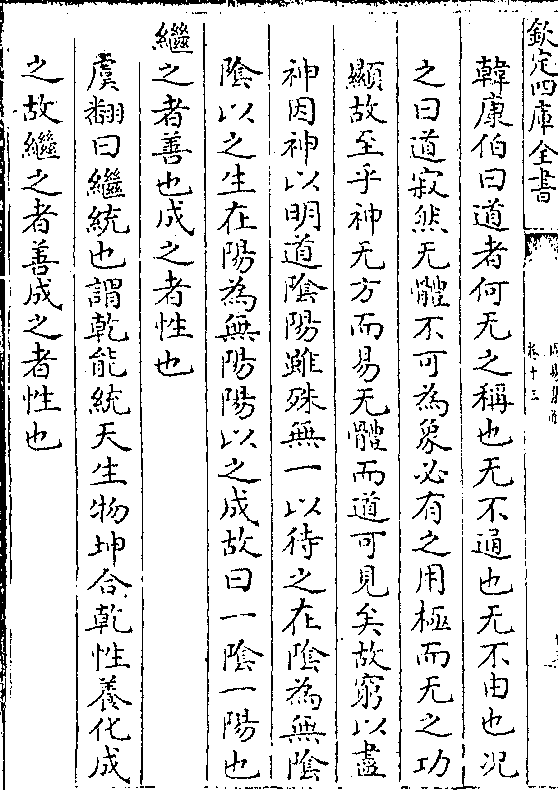 欽定四庫全書
卷十三
韓康伯曰道者何无之稱也无不通也无不由也况
之曰道寂然无體不可為象必有之用極而无之功
顯故至乎神无方而易无體而道可見矣故窮以盡
神因神以明道陰陽雖殊無一以待之在陰為無陰
陰以之生在陽為無陽陽以之成故曰一陰一陽也
繼之者善也成之者性也
虞翻曰繼統也謂乾能統天生物坤合乾性養化成
之故繼之者善成之者性也